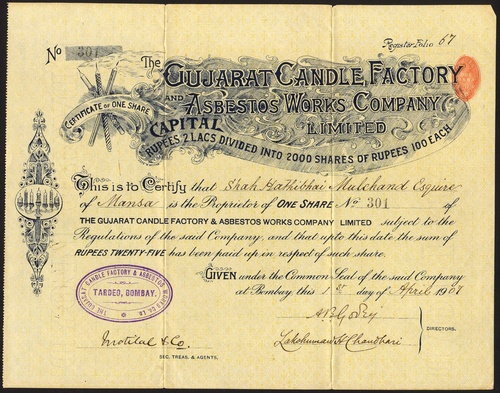 No 301
Register Folio 67
The GUJARAT CANDLE, FACTORY
AND ASBESTOS WORKS COMPANY
LIMITED
CERTIFICATE OF ONE SHARE
CAPITAL
RUPEES 2 LACS DIVIDED INTO 2000 SHARES OF RUPEES 100 EACH.
This is to Certify that Shah Hathibhai Mulchand Esquire
of Mansa is the Proprietor of ONE SHARE No 301 of
THE GUJARAT CANDLE FACTORY & ASBESTOS WORKS COMPANY LIMITED subject to the
Regulations of the said Company, and that upto this date the sum of
RUPEES TWENTY-FIVE has been paid up in respect of such share.
GIVEN under the Common Seal of the said Company
at Bombay, this 1st day of April 1907
THE GUJARAT CANDLE FACTORY & ASBESTOS WORKS CO. LD.
TARDEO, BOMBAY.
DIRECTORS.
Motilal & Co.
Lakshuman H Chaudhari
SEC. TREAS. & AGENTS.